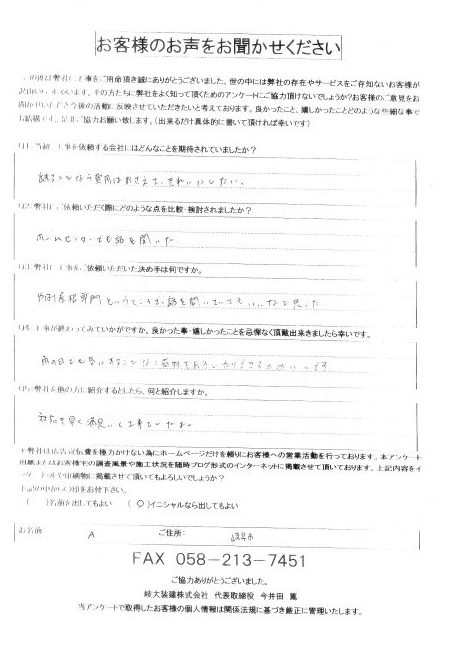 お客様のお声をお聞かせください
この度は弊社に工事をご用命頂き誠にありがとうございました。世の中には弊社の存在やサービスをご存知ないお客様が
沢山いらっしゃいます。その方たちに弊社をよく知って頂くためのアンケートにご協力頂けないでしょうか?お客様のご意見をお
聞かせいただき今後の活動に反映させていただきたいと考えております。良かったこと、嬉しかったことどのような些細な事で
も結構です。是非ご協力お願い致します。(出来るだけ具体的に書いて頂ければ幸いです)
Q1.当初、工事を依頼する会社にはどんなことを期待されていましたか?
できることなら費用はおさえて、きれいにしたい。
Q2.弊社にご依頼いただく際にどのような点を比較・検討されましたか?
ホームセンターでも話を聞いた
Q3.弊社に工事をご依頼いただいた決め手は何ですか。
屋根専門というところで、話を聞いていてもいいなと思った
Q4.工事が終わってみていかがですか。良かった事・嬉しかったことを忌憚なく頂戴出来ましたら幸いです。
雨の日でも気にすることなく
Q5.弊社を他の方に紹介するとしたら、何と紹介しますか。
対応も早く満足いく工事
※弊社は広告宣伝費を極力かけない為にホームページだけを頼りにお客様への営業活動を行っております。本アンケート
用紙またはお客様宅の調査風景や施工状況を随時ブログ形式のインターネットに掲載させて頂いております。上記内容をイ
ンターネットや印刷物に掲載させて頂いてもよろしいでしょうか?
下記の中から○印をお付け下さい。
( )名前を出してもよい (○)イニシャルなら出してもよい
お名前 A ご住所: 岐阜市
FAX 058-213-7451
ご協力ありがとうございました。
岐大装建株式会社 代表取締役 今井田 篤
当アンケートで取得したお客様の個人情報は関係法規に基づき厳正に管理いたします。